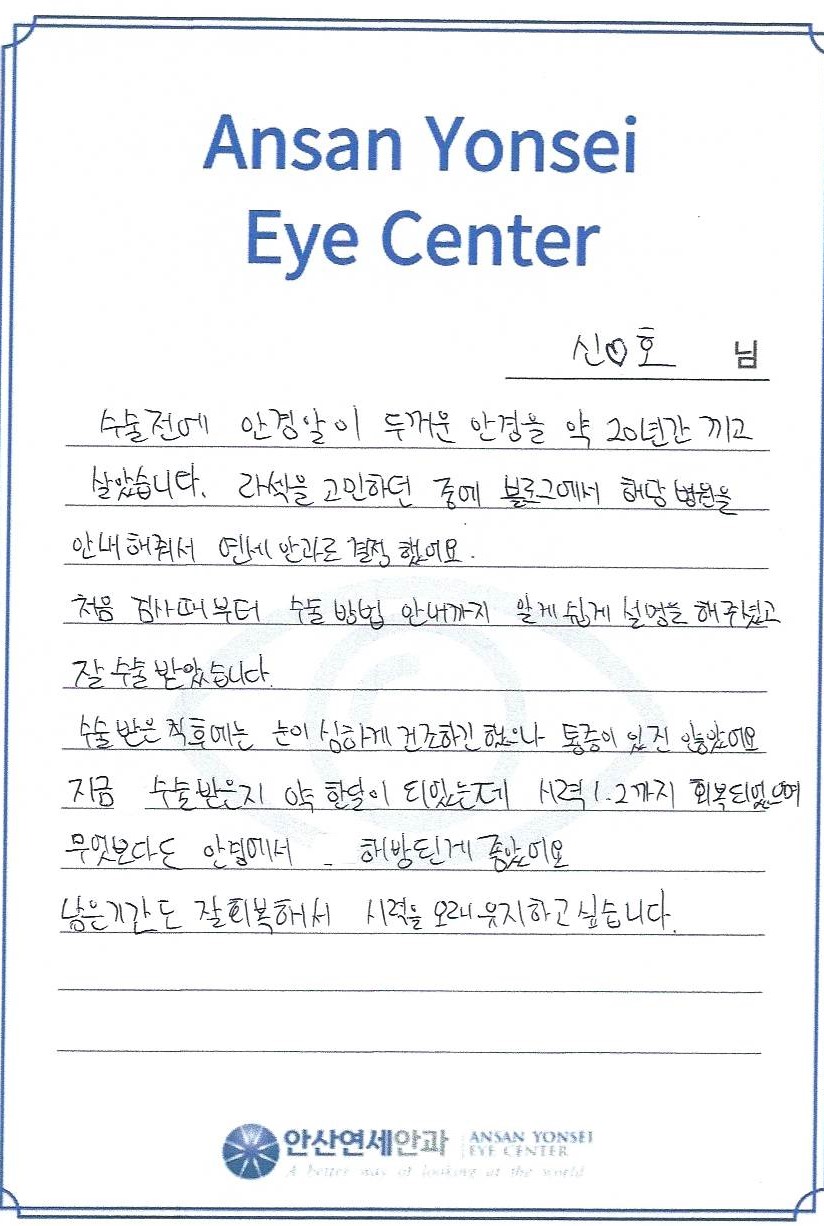 Ansan Yonsei
Eye Center
신♡호 님
수술전에 안경알이 두꺼운 안경을 약 20년간 끼고
살았습니다. 라섹을 고민하던 중에 블로그에서 해당 병원을
안내해줘서 연세안과로 결정 했어요.
처음 검사때부터 수술 방법 안내까지 알게쉽게 설명을 해주셨고
잘 수술 받았습니다.
수술 받은 직후에는 눈이 심하게 건조하긴 했으나 통증이 있진 않았어요
지금 수술받은지 약 한달이 되었는데 시력 1.2까지 회복되었으며
무엇보다도 안경에서 해방된게 좋았어요
남은기간도 잘회복해서 시력을 오래유지하고싶습니다.
안산연세안과 ANSAN YONSEI
EYE CENTER
A better way of looking at the world